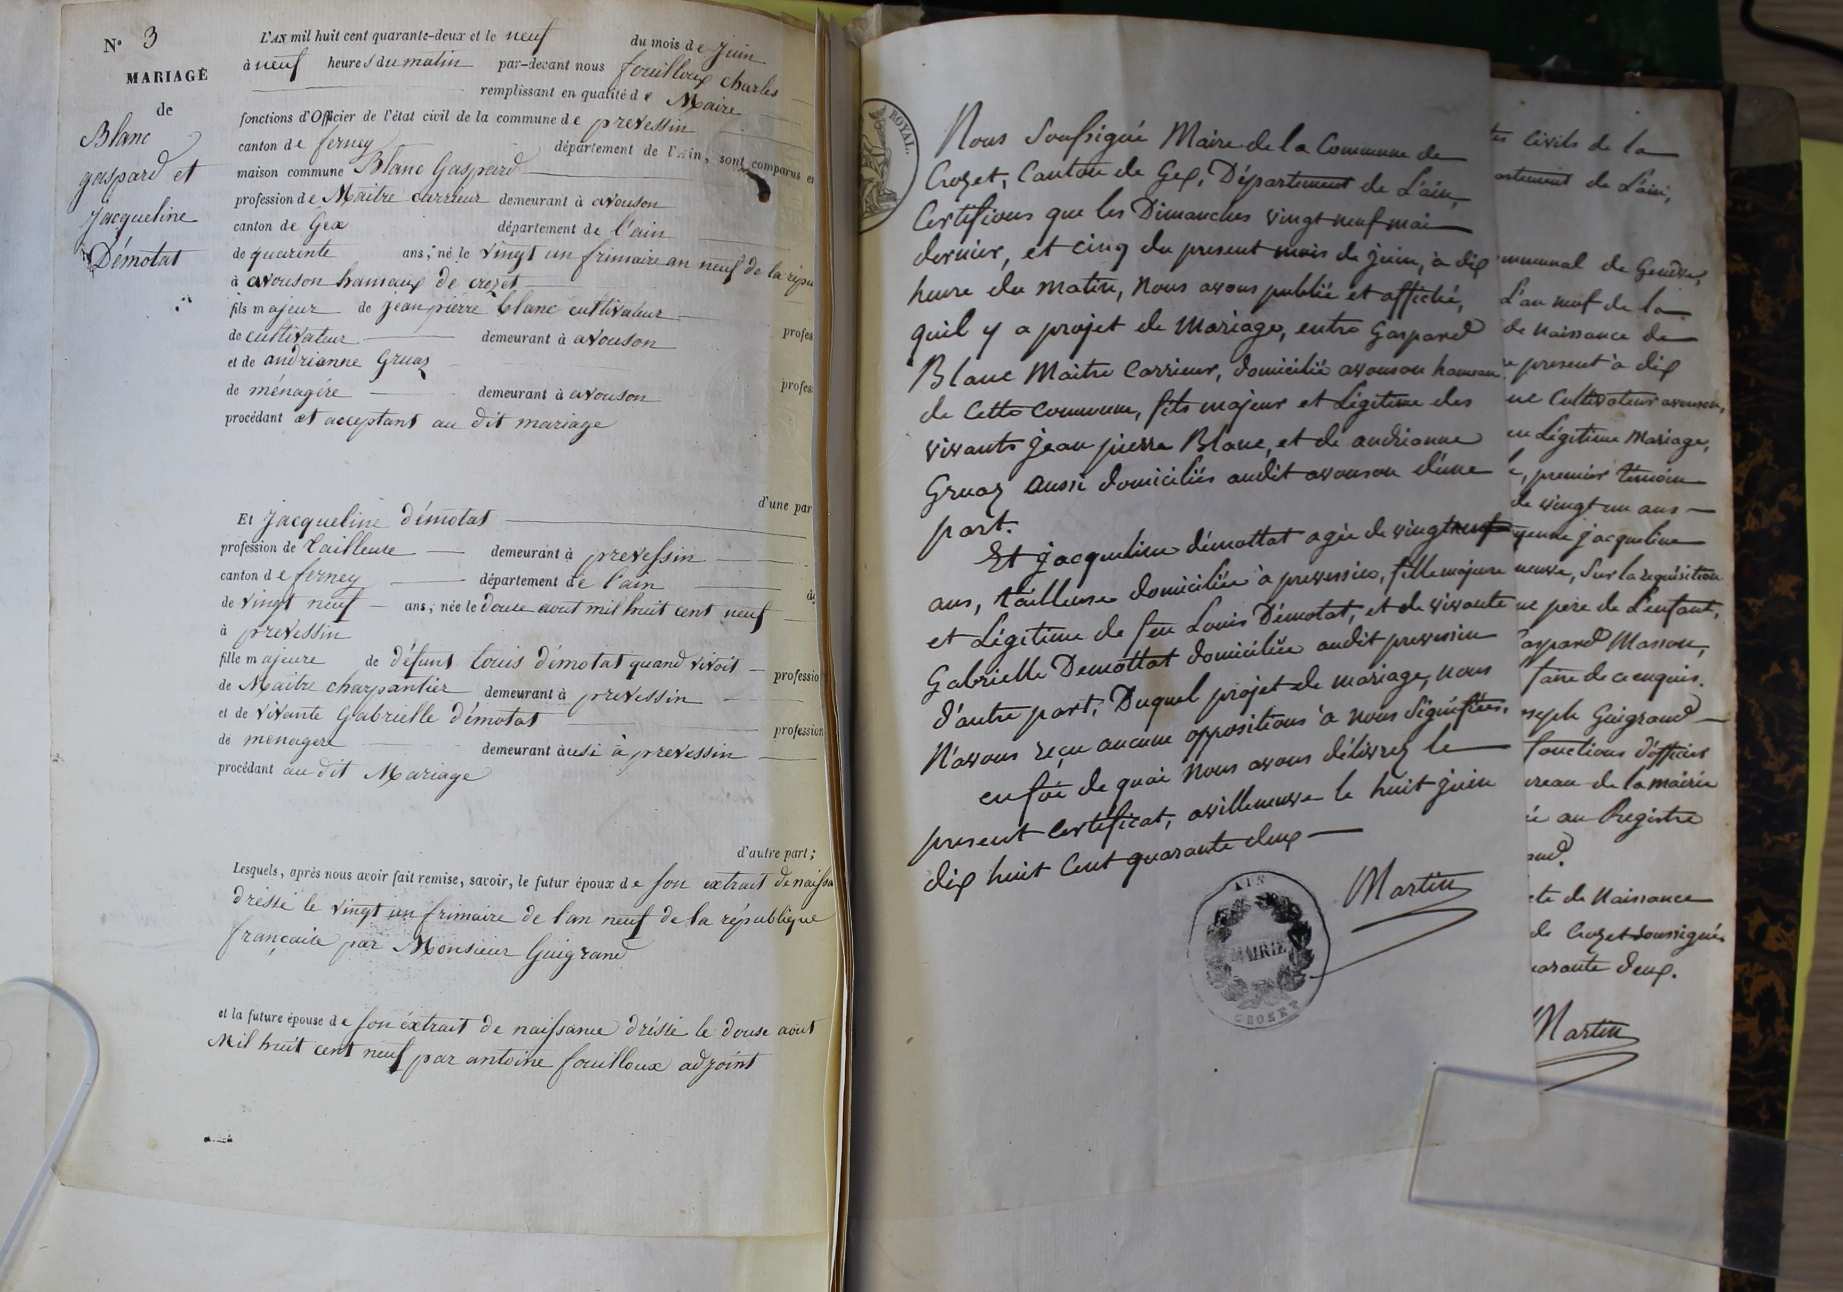 N° 3
MARIAGE
de
Blanc
gaspard et
jacqueline
Démotat
L'AN mil huit cent quarante-deux et le neuf du mois de juin
à neuf heures du matin par-devant nous fouilloux charles
remplissant en qualité de Maire
fonctions d'Officier de l'état civil de la commune de prevessin
canton de ferney département de l'Ain, sont comparus en
maison commune Blanc Gaspard
profession de Maitre carrieur demeurant à avouson
canton de Gex département de l'ain
de quarente ans; né le vingt un frimaire an neuf de la répu
à avouson hamaux de crozet
fils majeur de jean pierre blanc cultivateur
profes
de cultivateur demeurant à avouson
et de andrianne Gruaz
profes
de ménagére demeurant à avouson
procédant et acceptant au dit mariage
d'une par
Et jacqueline démotat
profession de tailleuse demeurant à prevessin
canton de ferney département de l'ain
de
de vingt neuf ans; née le douse aout mil huit cent neuf
à prevessin
fille majeure de défunt louis démotat quand vivoit
profession
de Maitre charpantier demeurant à prevessin
et de vivante Gabrielle démotat
profession
de menagere demeurant àusi à prevessin
procédant au dit Mariage
d'autre part;
Lesquels, après nous avoir fait remise, savoir, le futur époux de son extrait de naissa
dréssé le vingt un frimaire de l'an neuf de la république
française par Monsieur Guigrand
et la future épouse de son éxtrait de naissance dréssé le douse aout
Mil huit cent neuf par antoine fouilloux adjoint
ROYAL.
Nous Soussigné Maire de la Commune de
Crozet, Canton de Gex, Département de L'ain,
Certifions que les Dimanches vingt neuf mai
dernier, et cinq du present mois de juin, à dix
heure du matin, Nous avons publié et affiché,
quil y a projet de Mariage, entre Gaspard
Blanc Maitre Carrieur, domicilié avouson hameau
de Cette Commune, fils majeur et Légitime des
vivants jean pierre Blanc, et de andrianne
Gruaz aussi domiciliés audit avouson d'une
part.
Et jacqueline démottat agée de vingt neuf
ans, tailleuse domiciliée à prevessin, fille majeure
et Légitime de feu Louis Démotat, et de vivante
Gabrielle Demottat domiciliée audit prevessin
d'autre part, Duquel projet de mariage, nous
N'avons reçu aucune oppositions à nous Signifiées.
en foi de quoi Nous avons délivrez le
present Certificat, avilleneuve le huit juin
dix huit Cent quarante deux
Martin
AIN
MAIRIE
CROZET
civils de la
artement de L'ain,
mmunal de Gendre,
L'an neuf de la
de Naissance de
present à dix
Cultivateur avouson,
en Légitime Mariage,
premier témoin
de vingt un ans
jacqueline
neuve, Sur la requisition
père de L'enfant,
aspard Masson,
faire de ce enquis.
oseph Guigrand
fonctions d'officier
ureau de la mairie
au Registre
de Naissance
de Crozet soussigné
arante deux.
Martin